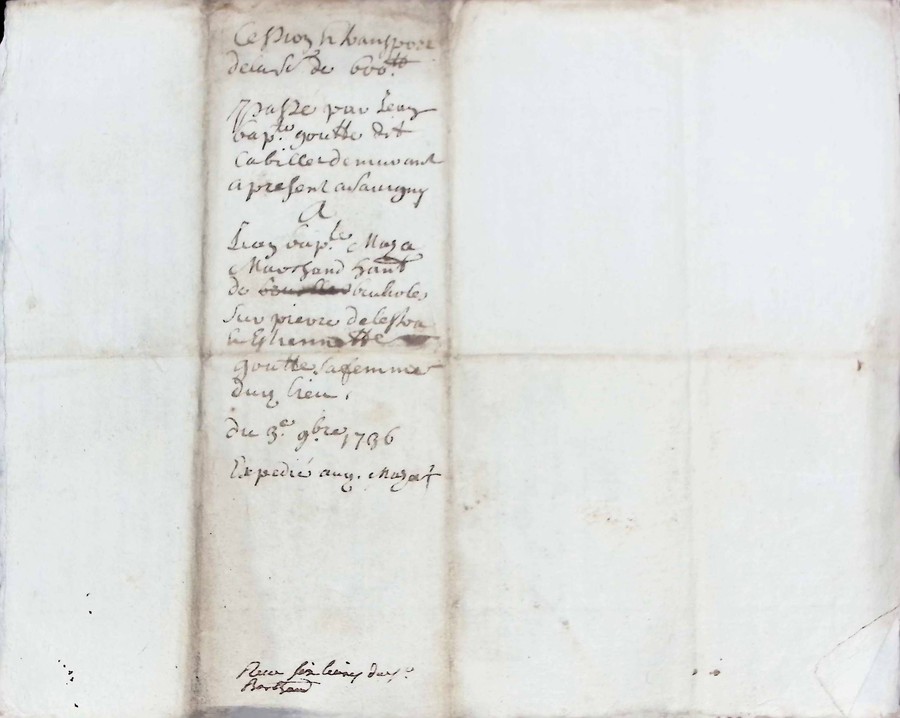 Cession & transport
de la S.e de 600 tt
passé par Jean
bap.te goutte dit
Cabillet demeurant
a present a Savigny
A
Jean bap.te Maza
Marchand
de bruhole
Sur pierre
& Ethiennette
goutte sa femme
dud lieu.
du 3.e 9bre 1736
Expedié aud. Mazat
Receu six livres dud.